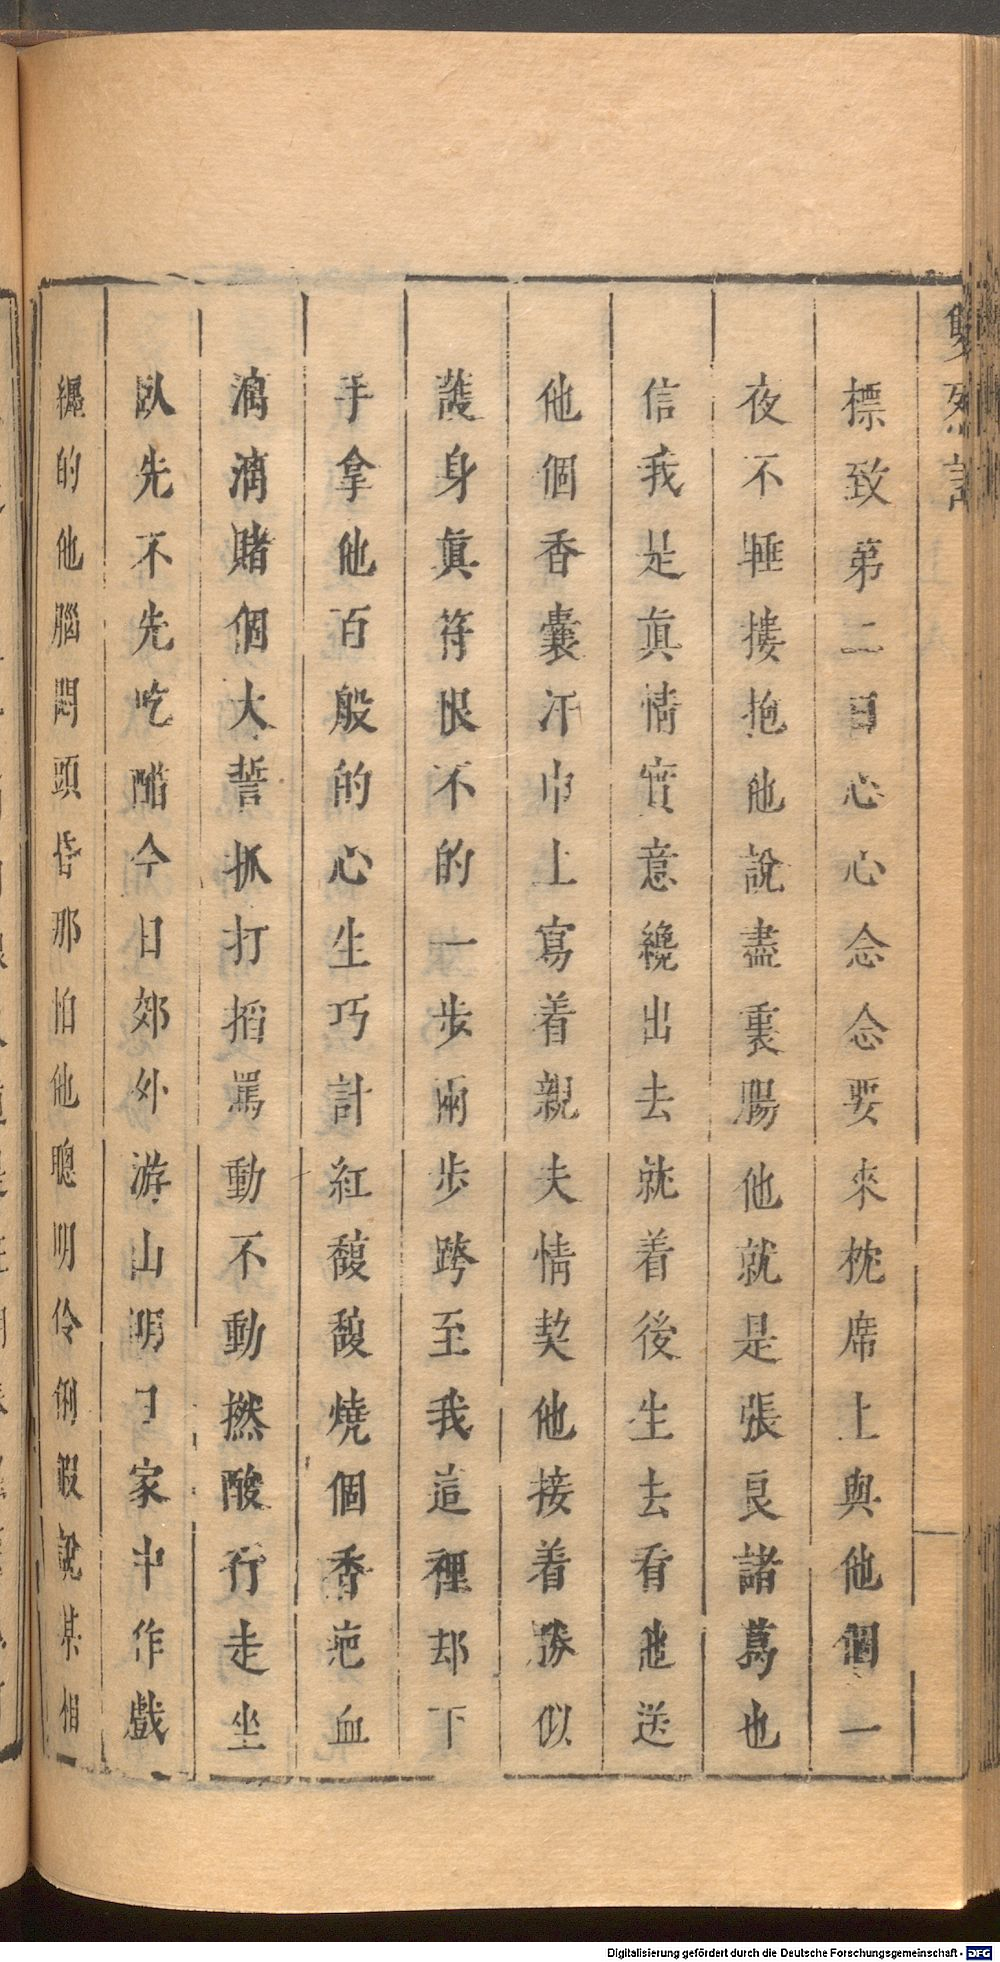 雙烈記
標致第二日心心念念要來枕席上與他個一
夜不睡摟抱他說盡裏腸他就是張良諸葛也
信我是眞情實意纔出去就着後生去看他送
他個香囊汗巾上寫着親夫情契他接着勝似
護身眞符恨不的一步兩步跨至我這裡却下
手拿他百般的心生巧計紅馥馥燒個香疤血
滴滴賭個大誓抓打掐罵動不動撚酸行走坐
臥先不先吃醋今日郊外游山明日家中作戲
纏的他腦悶頭昏那怕他聰明伶俐假說某相
Digitalisierung gefördert durch die Deutsche Forschungsgemeinschaft - DFG